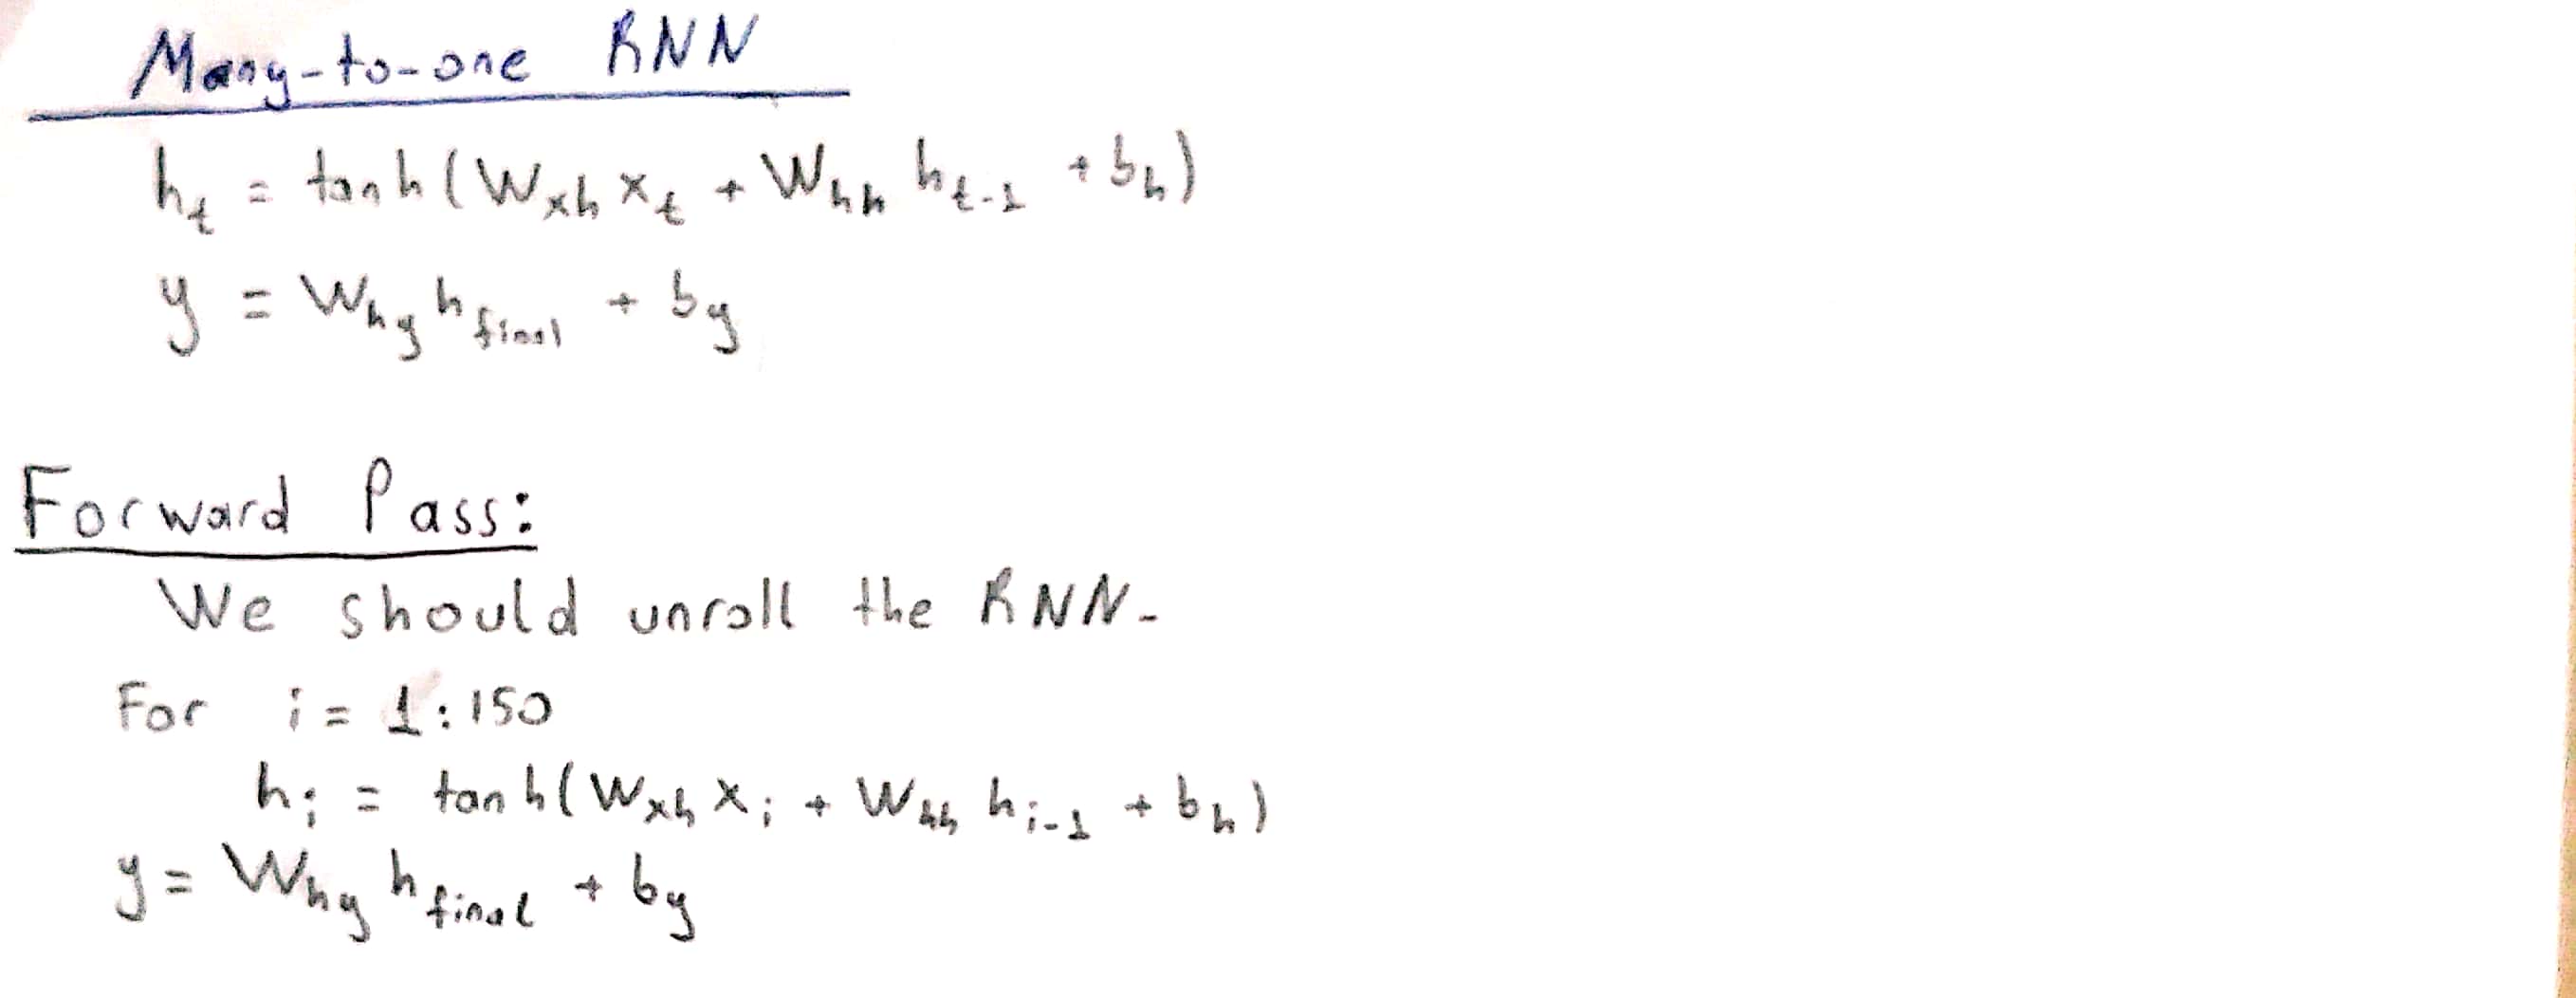 Many-to-one RNN
h_t = tanh(W_xh x_t + W_hh h_t-1 + b_h)
y = W_hy h_final + b_y
Forward Pass:
We should unroll the RNN.
For i = 1:150
h_i = tanh(W_xh x_i + W_hh h_i-1 + b_h)
y = W_hy h_final + b_y